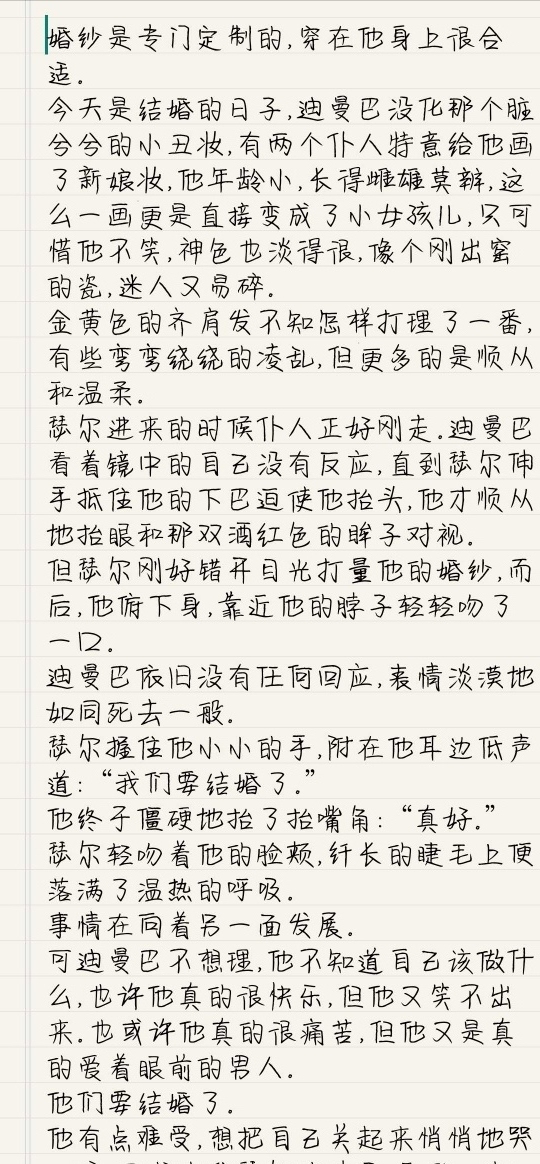 婚纱是专门定制的,穿在他身上很合
适。
今天是结婚的日子,迪曼巴没化那个脏
兮兮的小丑妆,有两个仆人特意给他画
了新娘妆,他年龄小,长得雌雄莫辨,这
么一画更是直接变成了小女孩儿,只可
惜他不笑,神色也淡得很,像个刚出窑
的瓷,迷人又易碎。
金黄色的齐肩发不知怎样打理了一番,
有些弯弯绕绕的凌乱,但更多的是顺从
和温柔。
瑟尔进来的时候仆人正好刚走.迪曼巴
看着镜中的自己没有反应,直到瑟尔伸
手抵住他的下巴逼使他抬头,他才顺从
地抬眼和那双酒红色的眸子对视.
但瑟尔刚好错开目光打量他的婚纱,而
后,他俯下身,靠近他的脖子轻轻吻了
一口.
迪曼巴依旧没有任何回应,表情淡漠地
如同死去一般.
瑟尔握住他小小的手,附在他耳边低声
道:“我们要结婚了.”
他终于僵硬地抬了抬嘴角:“真好.”
瑟尔轻吻着他的脸颊,纤长的睫毛上便
落满了温热的呼吸.
事情在向着另一面发展.
可迪曼巴不想理,他不知道自己该做什
么,也许他真的很快乐,但他又笑不出
来.也或许他真的很痛苦,但他又是真
的爱着眼前的男人.
他们要结婚了.
他有点难受,想把自己关起来悄悄地哭